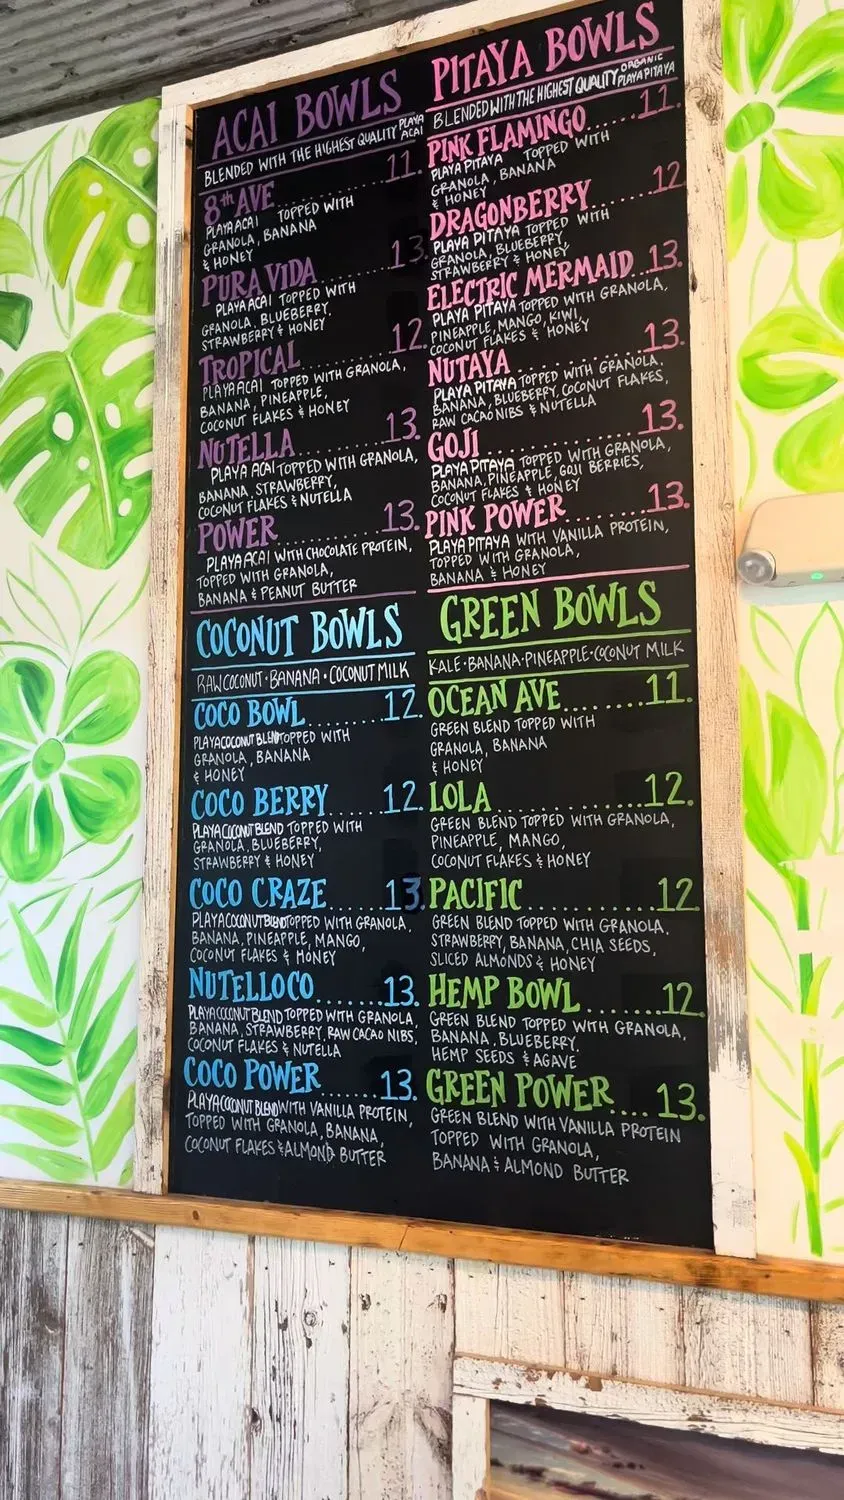 ACAI BOWLS
BLENDED WITH THE HIGHEST QUALITY PLAYA ACAI
8th AVE 11.
PLAYA ACAI TOPPED WITH
GRANOLA, BANANA
& HONEY
PURA VIDA 13.
PLAYA ACAI TOPPED WITH
GRANOLA, BLUEBERRY,
STRAWBERRY & HONEY
TROPICAL 12.
PLAYA ACAI TOPPED WITH GRANOLA,
BANANA, PINEAPPLE,
COCONUT FLAKES & HONEY
NUTELLA 13.
PLAYA ACAI TOPPED WITH GRANOLA,
BANANA, STRAWBERRY,
COCONUT FLAKES & NUTELLA
POWER 13.
PLAYA ACAI WITH CHOCOLATE PROTEIN,
TOPPED WITH GRANOLA,
BANANA & PEANUT BUTTER
PITAYA BOWLS
BLENDED WITH THE HIGHEST QUALITY ORGANIC PLAYA PITAYA
PINK FLAMINGO 11.
PLAYA PITAYA TOPPED WITH
GRANOLA, BANANA
& HONEY
DRAGONBERRY 12
PLAYA PITAYA TOPPED WITH
GRANOLA, BLUEBERRY,
STRAWBERRY & HONEY
ELECTRIC MERMAID 13.
PLAYA PITAYA TOPPED WITH GRANOLA,
PINEAPPLE, MANGO, KIWI,
COCONUT FLAKES & HONEY
NUTAYA 13.
PLAYA PITAYA TOPPED WITH GRANOLA,
BANANA, BLUEBERRY, COCONUT FLAKES,
RAW CACAO NIBS & NUTELLA
GOJI 13.
PLAYA PITAYA TOPPED WITH GRANOLA,
BANANA, PINEAPPLE, GOJI BERRIES,
COCONUT FLAKES & HONEY
PINK POWER 13.
PLAYA PITAYA WITH VANILLA PROTEIN,
TOPPED WITH GRANOLA,
BANANA & HONEY
COCONUT BOWLS
RAW COCONUT · BANANA · COCONUT MILK
COCO BOWL 12.
PLAYA COCONUT BLEND TOPPED WITH
GRANOLA, BANANA
& HONEY
COCO BERRY 12.
PLAYA COCONUT BLEND TOPPED WITH
GRANOLA, BLUEBERRY,
STRAWBERRY & HONEY
COCO CRAZE 13.
PLAYA COCONUT BLEND TOPPED WITH GRANOLA,
BANANA, PINEAPPLE, MANGO,
COCONUT FLAKES & HONEY
NUTELLOCO 13.
PLAYA COCONUT BLEND TOPPED WITH GRANOLA,
BANANA, STRAWBERRY, RAW CACAO NIBS,
COCONUT FLAKES & NUTELLA
COCO POWER 13.
PLAYA COCONUT BLEND WITH VANILLA PROTEIN,
TOPPED WITH GRANOLA, BANANA,
COCONUT FLAKES & ALMOND BUTTER
GREEN BOWLS
KALE · BANANA · PINEAPPLE · COCONUT MILK
OCEAN AVE 11.
GREEN BLEND TOPPED WITH
GRANOLA, BANANA
& HONEY
LOLA 12.
GREEN BLEND TOPPED WITH GRANOLA,
PINEAPPLE, MANGO,
COCONUT FLAKES & HONEY
PACIFIC 12
GREEN BLEND TOPPED WITH GRANOLA,
STRAWBERRY, BANANA, CHIA SEEDS,
SLICED ALMONDS & HONEY
HEMP BOWL 12.
GREEN BLEND TOPPED WITH GRANOLA,
BANANA, BLUEBERRY,
HEMP SEEDS & AGAVE
GREEN POWER 13.
GREEN BLEND WITH VANILLA PROTEIN
TOPPED WITH GRANOLA,
BANANA & ALMOND BUTTER